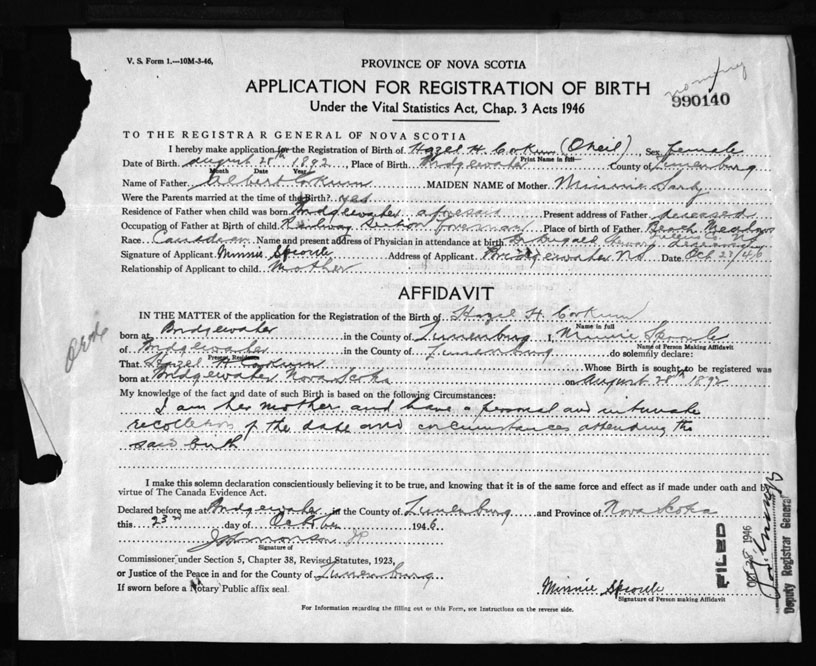 V. S. Form 1.—10M-3-46,
PROVINCE OF NOVA SCOTIA
APPLICATION FOR REGISTRATION OF BIRTH
990140
Under the Vital Statistics Act, Chap. 3 Acts 1946
TO THE REGISTRAR GENERAL OF NOVA SCOTIA
I hereby make application for the Registration of Birth of Hazel H. Corkum (Oneil), Sex Female
Print Name in full
Date of Birth August 28th 1892, Place of Birth Bridgewater County of Lunenburg
Month Date Year
Name of Father Albert Corkum MAIDEN NAME of Mother Minnie Sarty
Were the Parents married at the time of the Birth? yes
Residence of Father when child was born Bridgewater aforesaid Present address of Father deceased
Occupation of Father at Birth of child Railway section foreman Place of birth of Father Beach Meadows
Race Canadian Name and present address of Physician in attendance at birth Dr deceased
Signature of Applicant Minnie Sproule Address of Applicant Bridgewater NS Date Oct 23/46
Relationship of Applicant to child mother
AFFIDAVIT
IN THE MATTER of the application for the Registration of the Birth of Hazel H. Corkum
Name in full
born at Bridgewater in the County of Lunenburg I, Minnie Sproule
Name of Person Making Affidavit
of Bridgewater in the County of Lunenburg do solemnly declare:
Present Residence
That Hazel H. Corkum Whose Birth is sought to be registered was
born at Bridgewater Nova Scotia on August 28th 1892
My knowledge of the fact and date of such Birth is based on the following Circumstances:
I am her mother and have a personal and intimate
recollection of the date and circumstances attending the
said birth
I make this solemn declaration conscientiously believing it to be true, and knowing that it is of the same force and effect as if made under oath and by
virtue of The Canada Evidence Act.
Declared before me at Bridgewater in the County of Lunenburg and Province of Nova Scotia
this 23rd day of October 1946
Signature of
Commissioner under Section 5, Chapter 38, Revised Statutes, 1923,
or Justice of the Peace in and for the County of Lunenburg
If sworn before a Notary Public affix seal.
Minnie Sproule
Signature of Person making Affidavit
FILED
Oct 28 1946
Deputy Registrar General
For Information regarding the filling out of this Form, see Instructions on the reverse side.